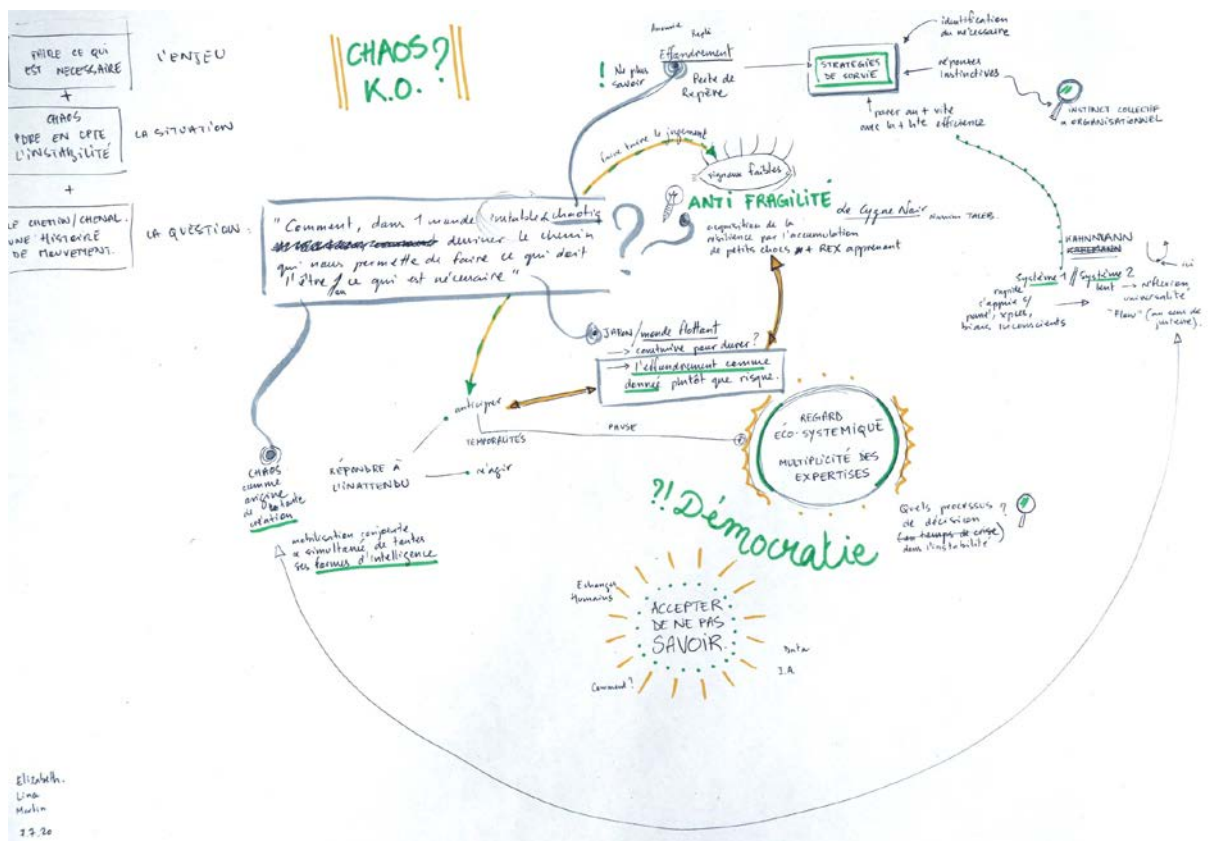 FAIRE CE QUI
EST NECESSAIRE
L'ENJEU
+
CHAOS
PDRE EN CPTE
L'INSTABILITÉ
LA SITUATION
+
LE CHEMIN/CHENAL.
UNE HISTOIRE
DE MOUVEMENT.
LA QUESTION:
CHAOS?
K.O.?
"Comment, dans 1 monde instable & chaotiq
dessiner le chemin
qui nous permette de faire ce qui doit
l'être / ce qui est nécessaire"
ou
?
Anomie
Repli
Effondrement
! Ne plus
savoir
Perte de
Repère
STRATÉGIES
DE SURVIE
identification
du nécessaire
réponses
instinctives
INSTINCT COLLECTIF
& ORGANISATIONNEL
parer au + vite
avec la + hte efficience
faire taire le jugement
signaux faibles
ANTI FRAGILITÉ
de Cygne Noir
TALEB.
acquisition de la
résilience par l'accumulation
de petits chocs + REX apprenant
KAHNMANN
Système 1 // Système 2
rapide
s'appuie s/
passé, xples,
biais inconscients
lent → réflexion
universalité
"Flow" (au sens de
JAPON/monde flottant
→ construire pour durer?
→ l'effondrement comme
donnée plutôt que risque.
anticiper
TEMPORALITÉS
PAUSE
RÉPONDRE À
L'INATTENDU
réagir
REGARD
ÉCO-SYSTEMIQUE
MULTIPLICITÉ DES
EXPERTISES
CHAOS
comme
origine
de toute
création
mobilisation conjointe
& simultanée de toutes
ses formes d'intelligence
?! Démocratie
Quels processus ?
de décision
(en temps de crise)
dans l'instabilité
Echanges
Humains
ACCEPTER
DE NE PAS
SAVOIR.
Data
I.A.
Comment?
Elizabeth.
Lina
Martin
2.7.20